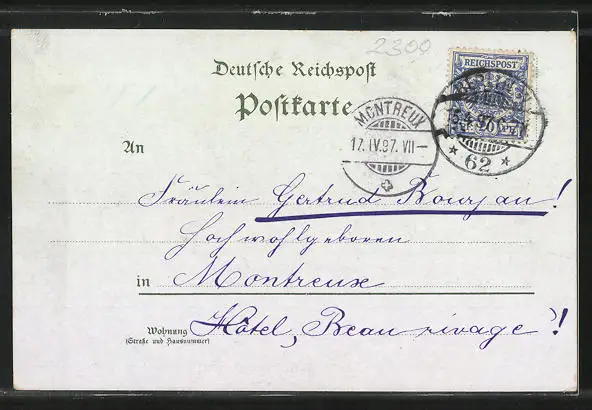 2300
Deutsche Reichspost
Postkarte
REICHSPOST
BERLIN
62
MONTREUX
17.IV.97.VII–
An
Fräulein Gertrud Bourjau!
Hochwohlgeboren
in Montreux
Wohnung Hôtel „Beau rivage"!
(Straße und Hausnummer)